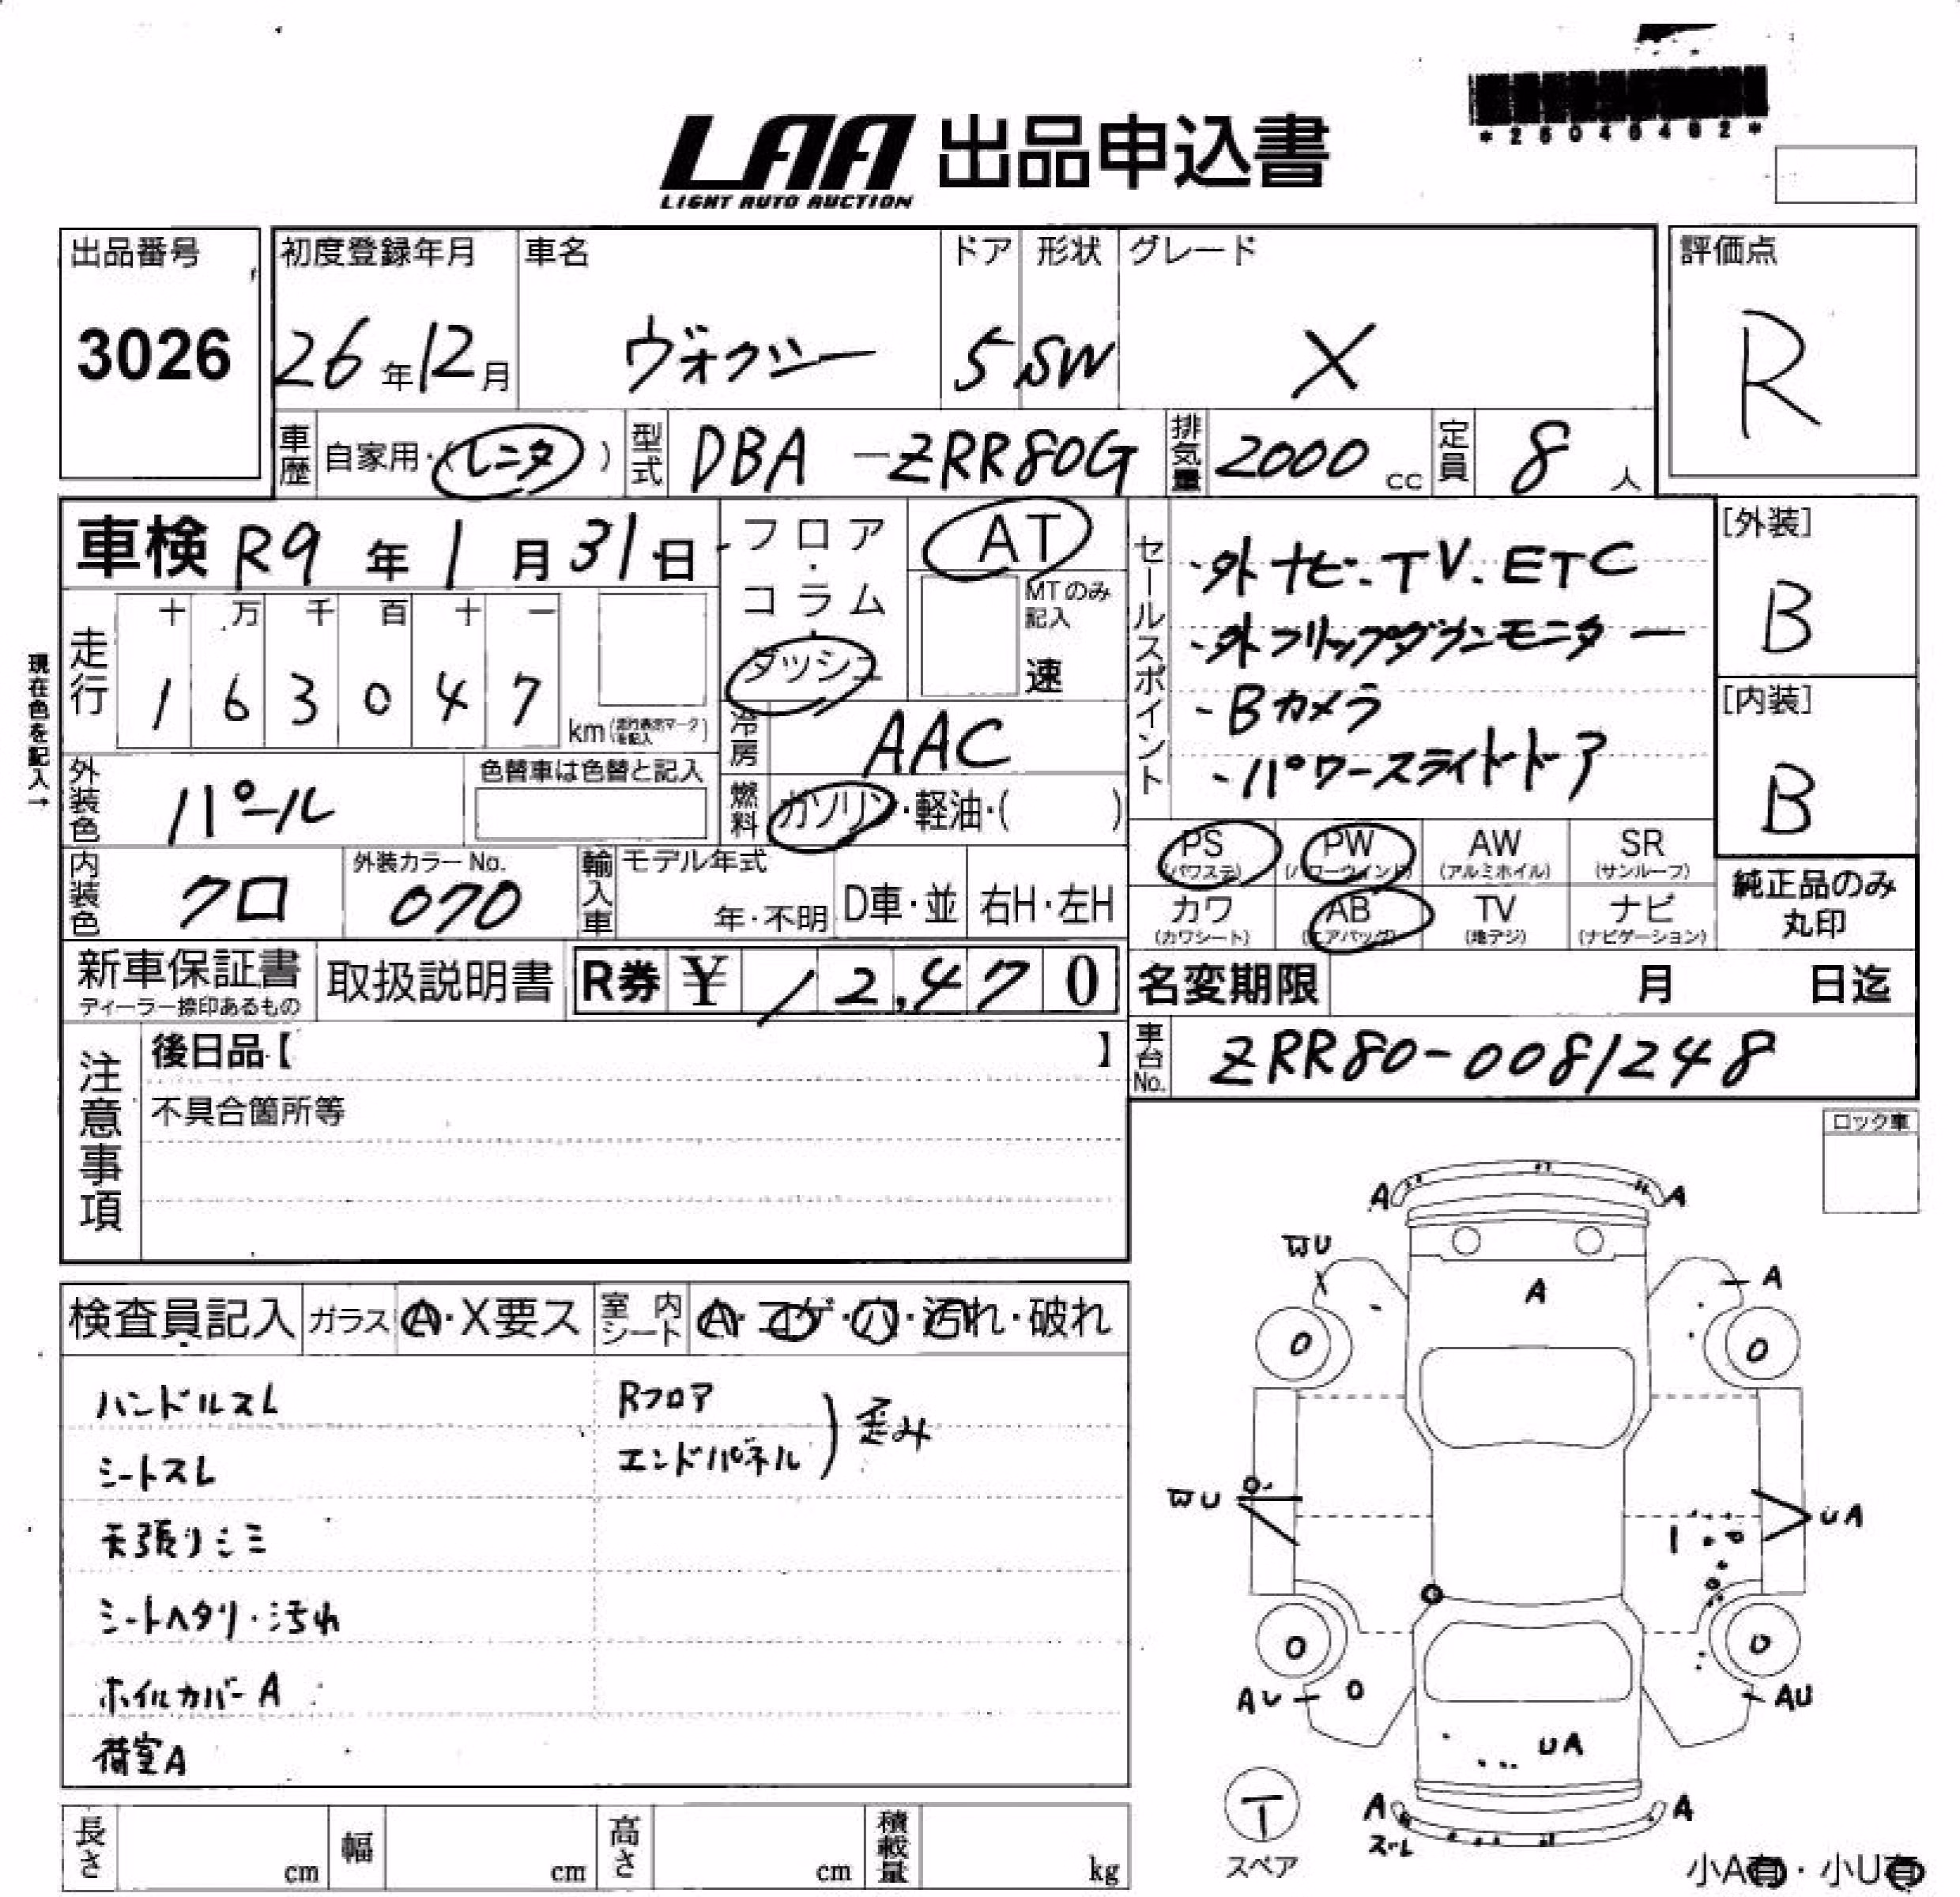 *26040402*
LAA 出品申込書
LIGHT AUTO AUCTION
出品番号
3026
初度登録年月
26年12月
車名
ヴォクシー
ドア
5
形状
SW
グレード
X
評価点
R
車歴 自家用・(レンタ)
型式 DBA-ZRR80G
排気量 2000 cc
定員 8 人
車検 R9年1月31日
フロア・コラム・ダッシュ
AT
MTのみ記入
速
セールスポイント
・外ナビ.TV.ETC
・外フリップダウンモニター
・Bカメラ
・パワースライドドア
[外装]
B
[内装]
B
現在色を記入→
走行
十 万 千 百 十 一
1 6 3 0 4 7
km(走行表示マークを記入)
冷房 AAC
燃料 ガソリン・軽油・( )
外装色 パール
色替車は色替と記入
内装色 クロ
外装カラーNo.
070
輸入車 モデル年式
年・不明
D車・並
右H・左H
PS (パワステ)
PW (パワーウインド)
AW (アルミホイル)
SR (サンルーフ)
カワ (カワシート)
AB (エアバッグ)
TV (地デジ)
ナビ (ナビゲーション)
純正品のみ
丸印
新車保証書
ディーラー捺印あるもの
取扱説明書
R券 ¥ 12,470
名変期限 月 日迄
車台No. ZRR80-0081248
注意事項
後日品【 】
不具合箇所等
ロック車
検査員記入
ガラス A・X要ス
室内シート A・コゲ・穴・汚れ・破れ
ハンドルスレ
シートスレ
天張りシミ
シートヘタリ・汚れ
ホイルカバーA
荷室A
Rフロア
エンドパネル
歪み
A A
U
A
A
U
UA
AU
AU
UA
A
スレ
A
T
スペア
小A有・小U有
長さ cm
幅 cm
高さ cm
積載量 kg